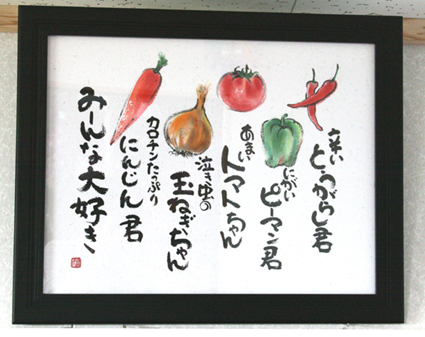 辛い
とうがらし君
にがい
ピーマン君
あまい
トマトちゃん
泣き虫の
玉ねぎちゃん
カロチンたっぷり
にんじん君
みーんな大好き